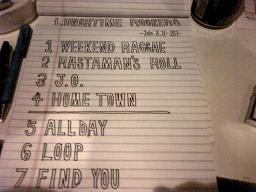 LUNCHTIME ROCKERS
1 WEEKEND RAGGAE
2 RASTAMAN'S ROLL
3 J.O.
4 HOME TOWN
5 ALLDAY
6 LOOP
7 FIND YOU